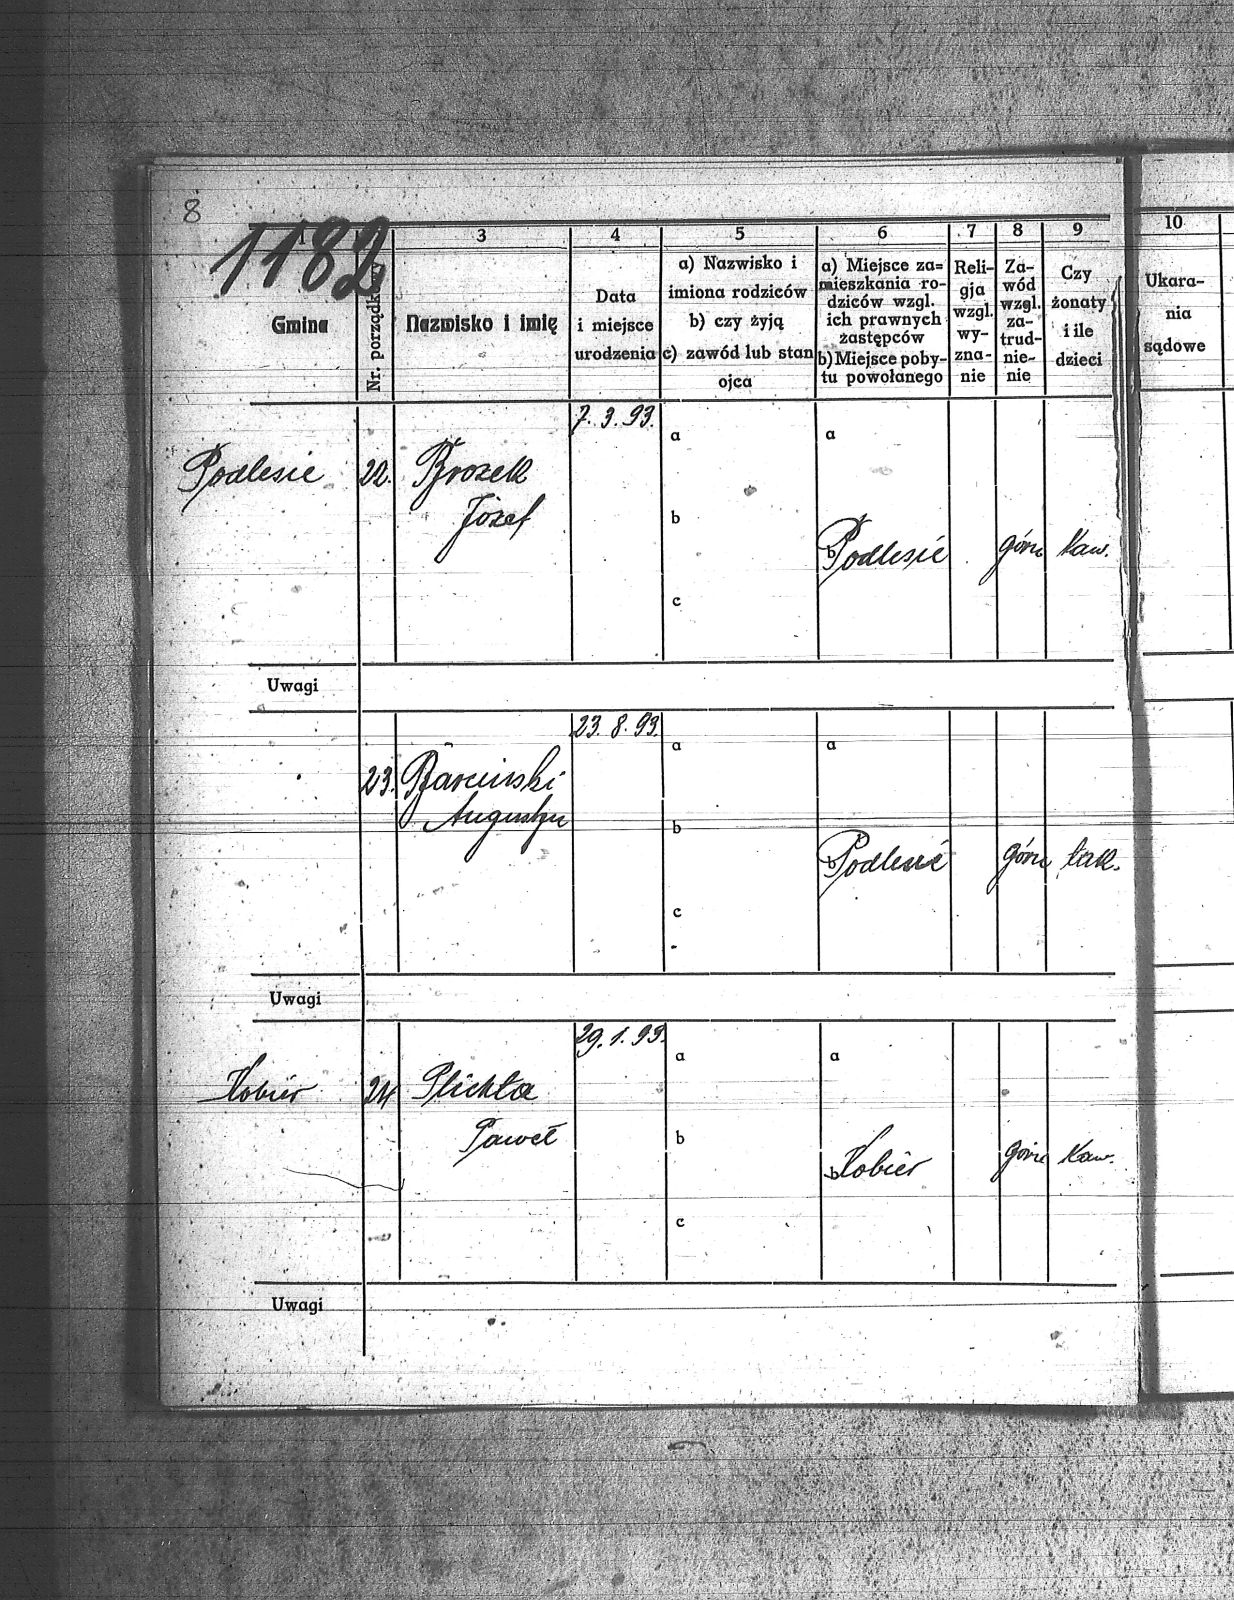 8
1182
1
3
4
5
6
7
8
9
10
Gmina
Nr. porządk
Nazwisko i imię
Data
i miejsce
urodzenia
a) Nazwisko i
imiona rodziców
b) czy żyją
c) zawód lub stan
ojca
a) Miejsce za=
mieszkania ro-
dziców wzgl.
ich prawnych
zastępców
b) Miejsce poby-
tu powołanego
Reli-
gja
wzgl.
wy-
zna-
nie
Za-
wód
wzgl.
za-
trud-
nie-
nie
Czy
żonaty
i ile
dzieci
Ukara-
nia
sądowe
7. 3. 93.
a
a
Podlesie 22. Brozek
Józef
b
b Podlesie górn kaw.
c
Uwagi
23. 8. 93.
a
a
23.
Augustyn
b
b Podlesie górn żak.
c
Uwagi
29. 1. 93.
a
a
Kobiór 24 Plichta
Paweł
b
b Kobiór górn kaw.
c
Uwagi